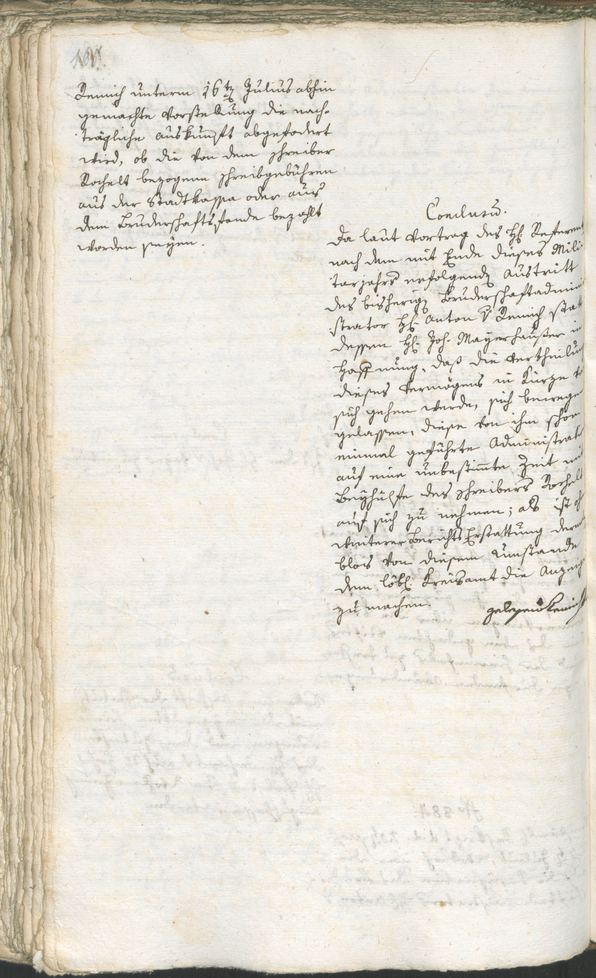 Remich unterm 16tẽ Julius abhin
gemachte Vorstellung die nach-
trägliche Auskunft abgefodert
wird, ob die von dem Schreiber
Rochelt bezogene Schreibgebühren
aus der Stadtkassa oder aus
dem Bruderschaftsfonde bezahlt
worden seyen.
Conclusũ.
Da laut Vortrag des H: Referent
nach dem mit Ende dieses Mili-
tarjahrs erfolgendẽ Austritt
des bisherigẽ Bruderschaftadmini
strator H: Anton v Remich statt
dessen H: Joh. Mayerhauser in
Hoffnung, daß die Vertheilung
dieses Vermögens in Kürze vor
sich gehen werde, sich bewegen
gelassen, diese von ihm schon
einmal geführte Administrat
auf eine unbestimte Zeit mit
Beyhülfe des Schreibers Rochelt
auf sich zu nehmen; als ist
weiterer Berichts Erstattung
blos von diesem Umstande
dem löbl: Kreisamt die Anzeige
zu machen.